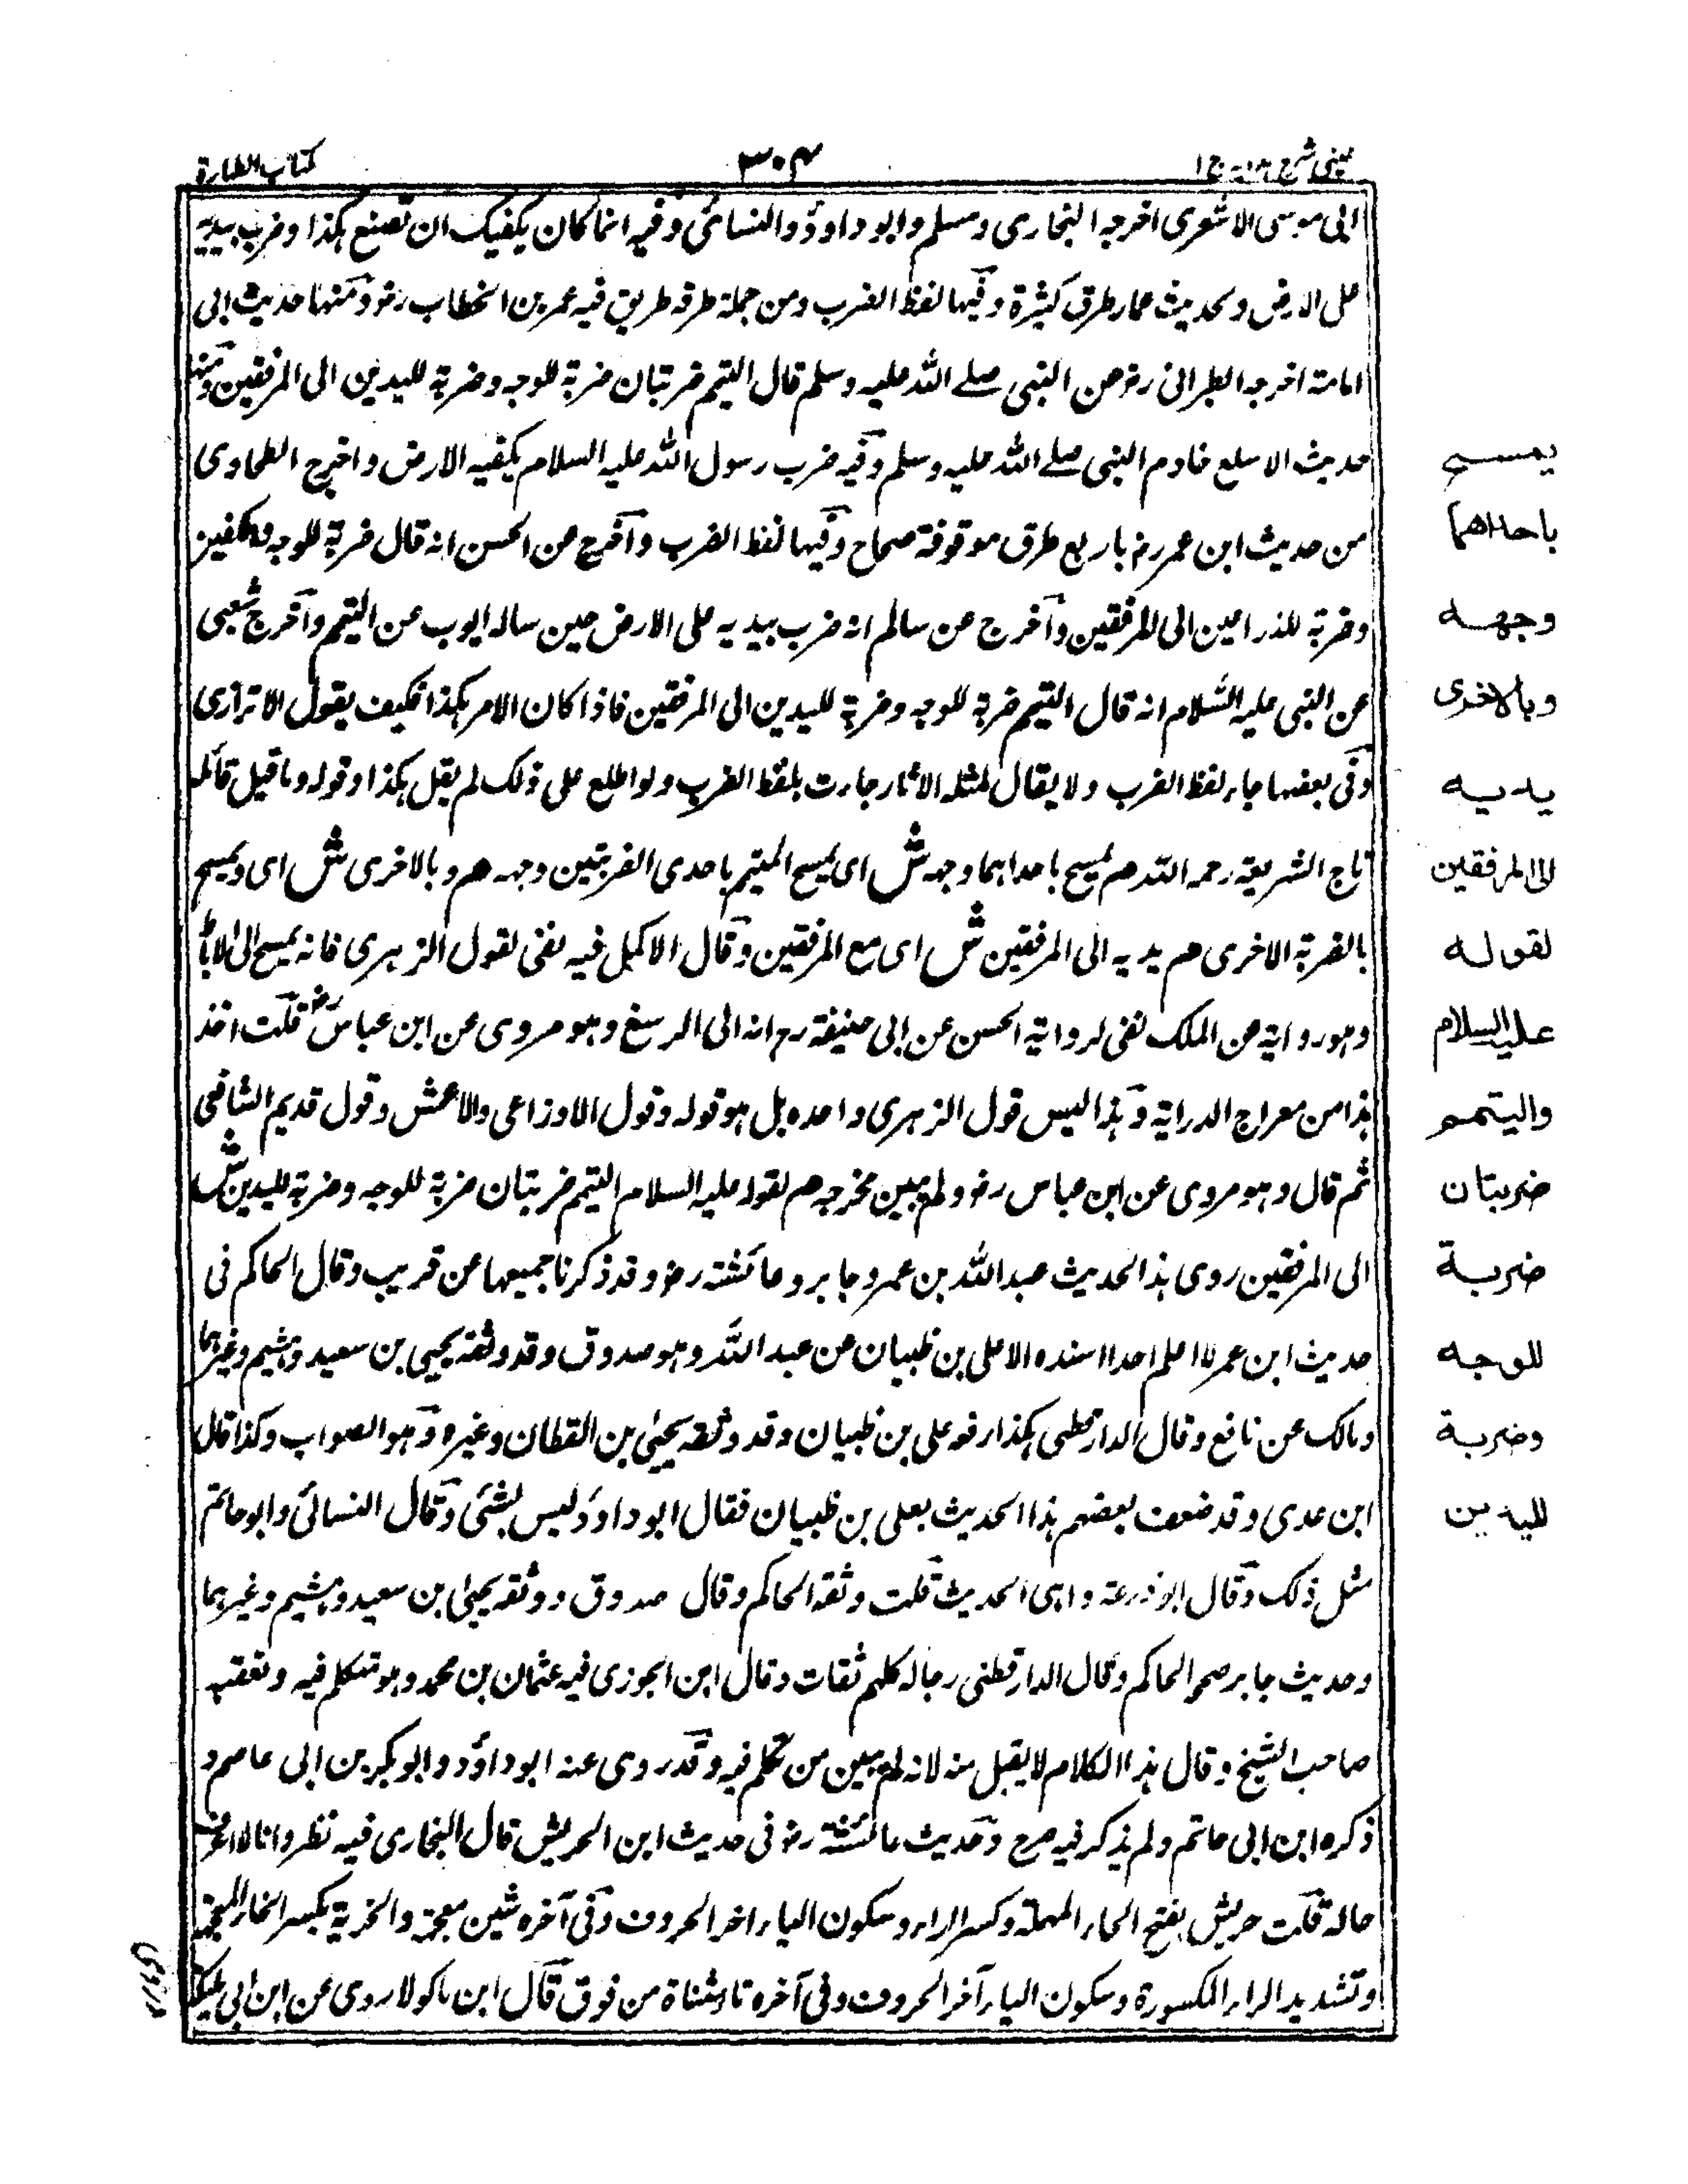 عینی شرح ہدایہ ج ا
۳۰۴
کتاب الطہارۃ
ابی موسی الاشعری اخرجہ البخاری ومسلم وابو داود والنسائی وفیہ انما کان یکفیک ان تصنع ہکذا وضرب بیدیہ
علی الارض ولحدیث عمار طرق کثیرۃ وفیہا لفظ الضرب ومن جملۃ طرقہ طریق فیہ عمر بن الخطاب رضو ومنہا حدیث ابی
امامۃ اخرجہ الطبرانی رضو عن النبی صلے اللہ علیہ وسلم قال التیمم ضربتان ضربۃ للوجہ وضربۃ للیدین الی المرفقین ومنہا
حدیث الاسلع خادم النبی صلے اللہ علیہ وسلم وفیہ ضرب رسول اللہ علیہ السلام بکفیہ الارض واخرج الطحاوی
من حدیث ابن عمر رضو باربع طرق موقوفۃ صحاح وفیہا لفظ الضرب واخرج عن الحسن انہ قال ضربۃ للوجہ والکفین
وضربۃ للذراعین الی المرفقین واخرج عن سالم انہ ضرب بیدیہ علی الارض حین سالہ ایوب عن التیمم واخرج شعبی
عن النبی علیہ السلام انہ قال التیمم ضربۃ للوجہ وضربۃ للیدین الی المرفقین فاذا کان الامر ہکذا فکیف یقول الاترازی
وفی بعضہا جاء لفظ الضرب ولا یقال لمثلہ الآثار جاءت بلفظ الضرب ولو اطلع علی ذلک لم یقل ہکذا وقولہ وما قیل قائلہ
تاج الشریعۃ رحمہ اللہ ھم یمسح باحداہما وجہہ ش ای یمسح المتیمم باحدی الضربتین وجہہ ھم وبالاخری ش ای ویمسح
بالضربۃ الاخری ھم یدیہ الی المرفقین ش ای مع المرفقین وقال الاکمل فیہ نفی لقول الزہری فانہ یمسح الی الاباط
وہو روایۃ عن الملک نفی لروایۃ الحسن عن ابی حنیفۃ رح انہ الی الرسغ وہو مروی عن ابن عباس رضو قلت اخذ
ہذا من معراج الدرایۃ وہذا لیس قول الزہری واحدہ بل ہو قولہ وقول الاوزاعی والاعمش وقول قدیم الشافعی
ثم قال وہو مروی عن ابن عباس رضو ولم یبین مخرجہ ھم لقولہ علیہ السلام التیمم ضربتان ضربۃ للوجہ وضربۃ للیدین ش
الی المرفقین روی ہذا الحدیث عبداللہ بن عمرو جابر وعائشۃ رضو وقد ذکرنا جمیعہا عن قریب وقال الحاکم فی
حدیث ابن عمر لا اعلم احدا اسندہ الا علی بن ظبیان عن عبد اللہ وہو صدوق وقد وثقہ یحیی بن سعید وہشیم وغیرہما
ومالک عن نافع وقال الدارقطنی ہکذا رفعہ علی بن ظبیان وقد وثقہ یحیی بن القطان وغیرہ وہو الصواب وکذا قال
ابن عدی وقد ضعف بعضہم ہذا الحدیث بعلی بن ظبیان فقال ابو داود لیس بشئی وقال النسائی وابو حاتم
مثل ذلک وقال ابو زرعۃ واہی الحدیث قلت وثقہ الحاکم وقال صدوق ووثقہ یحیی بن سعید وہشیم وغیرہما
وحدیث جابر صححہ الحاکم وقال الدارقطنی رجالہ کلہم ثقات وقال ابن الجوزی فیہ عثمان بن محمد وہو متکلم فیہ وتعقبہ
صاحب الشیخ وقال ہذا الکلام لا یقبل منہ لانہ لم یبین من تکلم فیہ وقد روی عنہ ابو داود وابو بکر بن ابی عاصم و
ذکرہ ابن ابی حاتم ولم یذکر فیہ جرح وحدیث عائشۃ رضو فی حدیث ابن الحریش قال البخاری فیہ نظر وانا لا اعرف
حالہ قلت حریش بفتح الحاء المہملۃ وکسر الراء وسکون الیاء اخر الحروف وفی آخرہ شین معجمۃ والخریۃ بکسر الخاء المعجمۃ
وتشدید الراء المکسورۃ وسکون الیاء آخر الحروف وفی آخرہ تاء مثناۃ من فوق قال ابن ماکولا روی عن ابن ابی ملیکۃ
یمسح
باحداھما
وجھہ
وبالاخری
یدیہ
الی المرفقین
لقولہ
علیہ السلام
والتیمم
ضربتان
ضربۃ
للوجہ
وضربۃ
للیدین